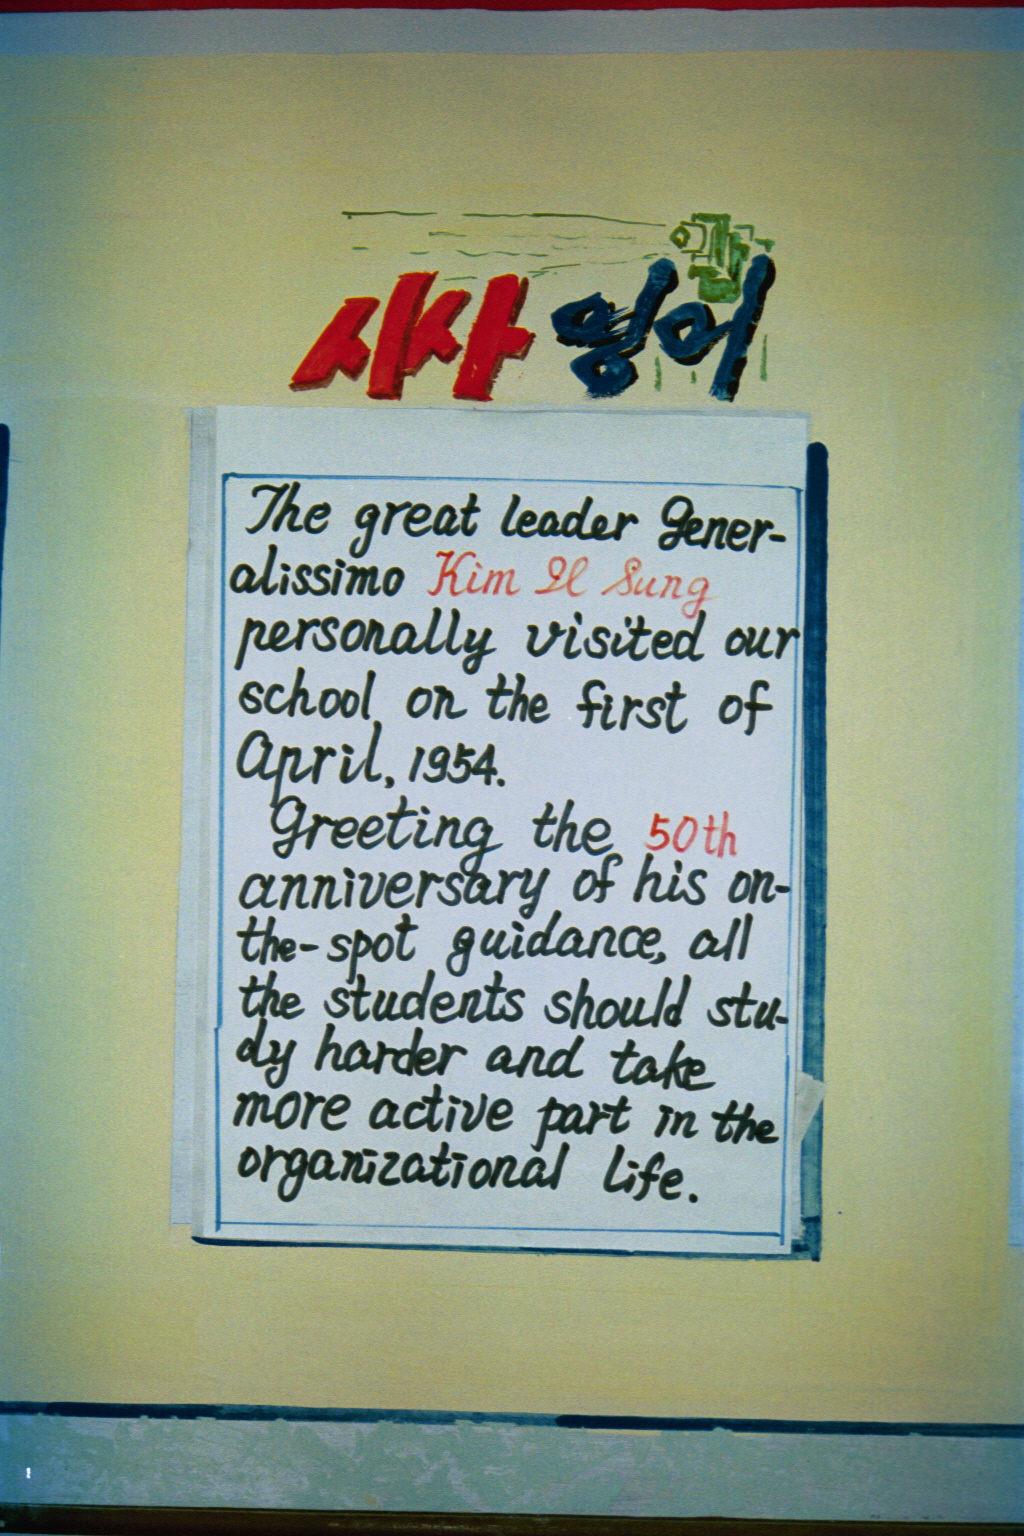 시사 영어
The great leader Gener-
alissimo Kim Il Sung
personally visited our
school on the first of
April, 1954.
Greeting the 50th
anniversary of his on-
the-spot guidance, all
the students should stu-
dy harder and take
more active part in the
organizational life.